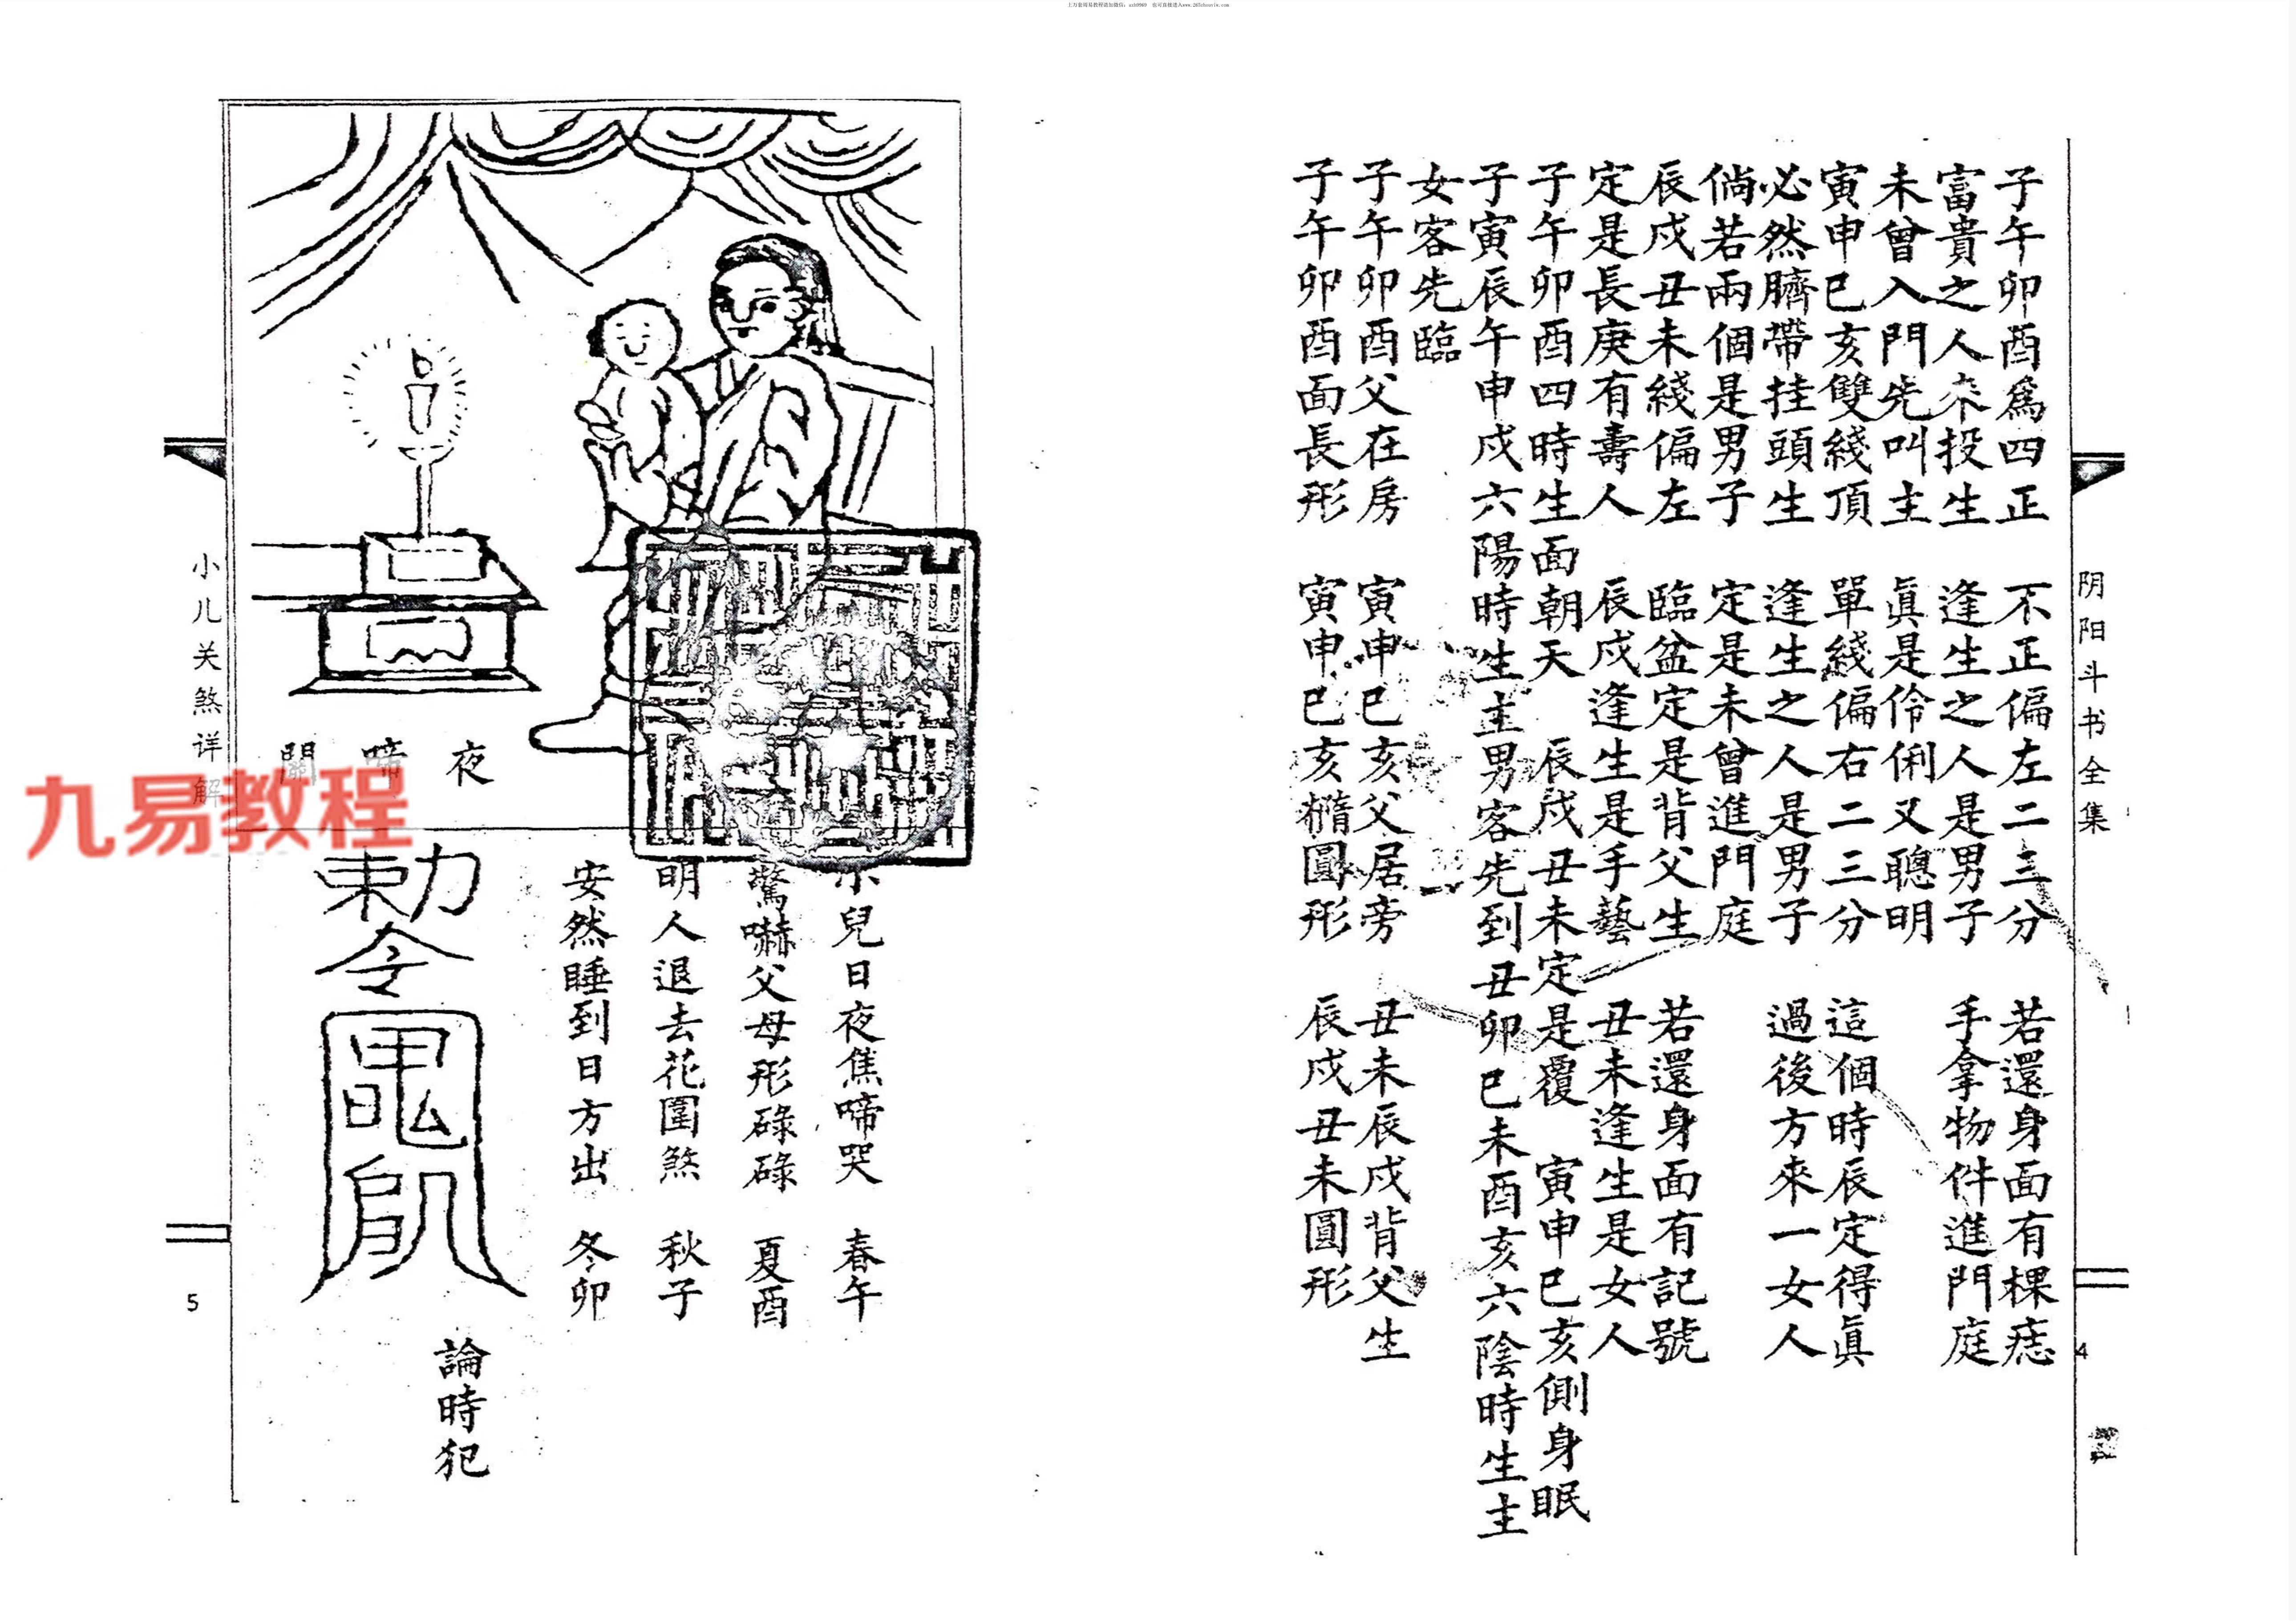 子午卯酉爲四正　不正偏左二三分　若還身面有棵痣
富貴之人來投生　逢生之人是男子　手拿物件進門庭
未曾入門先叫主　眞是伶俐又聰明
寅申巳亥雙綫頂　單綫偏右二三分　這個時辰定得眞
必然臍帶挂頭生　逢生之人是男子　過後方來一女人
倘若兩個是男子　定是未曾進門庭
辰戌丑未綫偏左　臨盆定是背父生　若還身面有記號
定是長庚有壽人　辰戌逢生是手藝　丑未逢生是女人
子午卯酉四時生面朝天　辰戌丑未定是覆　寅申巳亥側身眠
子寅辰午申戌六陽時生主男客先到丑卯巳未酉亥六陰時生主
女客先臨
子午卯酉父在房　寅申巳亥父居旁　丑未辰戌背父生
子午卯酉面長形　寅申巳亥橢圓形　辰戌丑未圓形
阴阳斗书全集
4
夜啼關
小兒日夜焦啼哭　春午
驚嚇父母形碌碌　夏酉
明人退去花園煞　秋子
安然睡到日方出　冬卯
論時犯
勅令
小儿关煞详解
5
九易教程